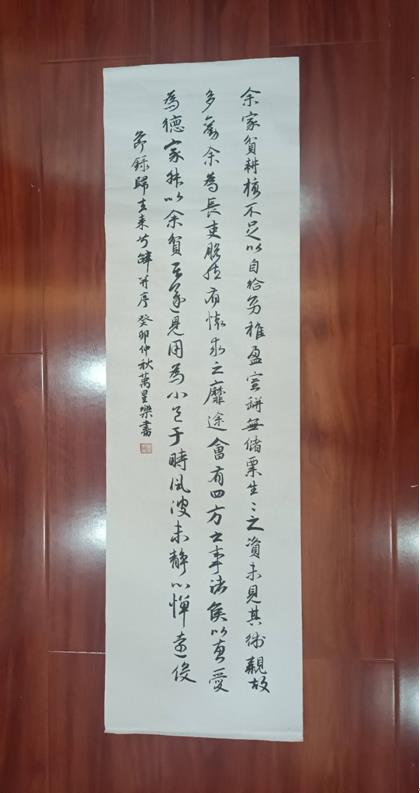 余家貧耕植不足以自給幼稚盈室缾無儲粟生〻之資未見其術親故
多勸余為長吏脫然有懷求之靡途會有四方之事諸侯以惠愛
為德家叔以余貧苦遂見用為小邑于時風波未靜心憚遠役
節錄歸去來兮辭并序 癸卯仲秋萬星樂書